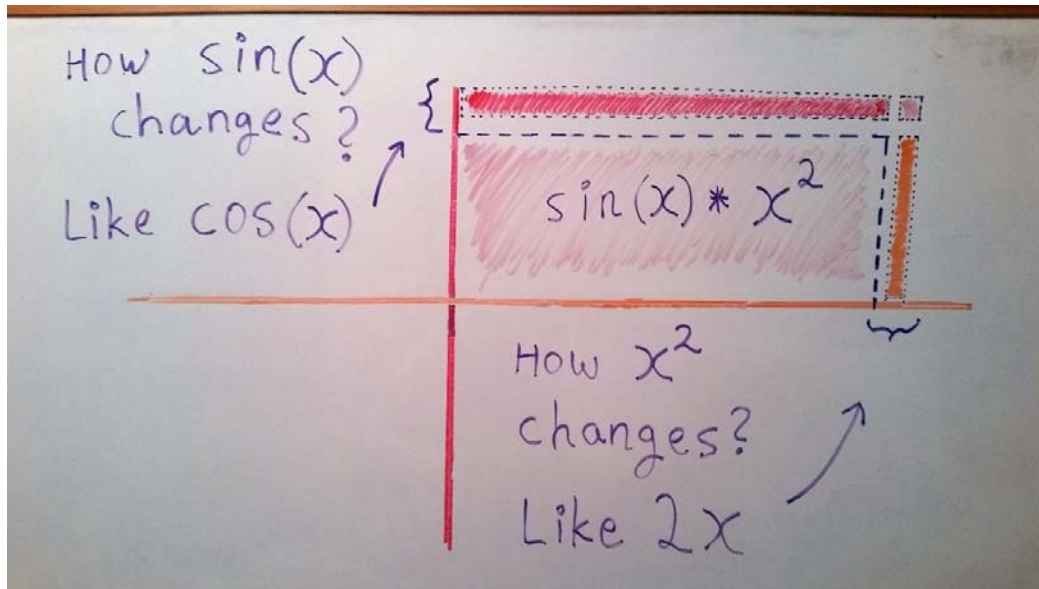 How sin(x)
changes?
Like cos(x)
sin(x) * x²
How x²
changes?
Like 2x